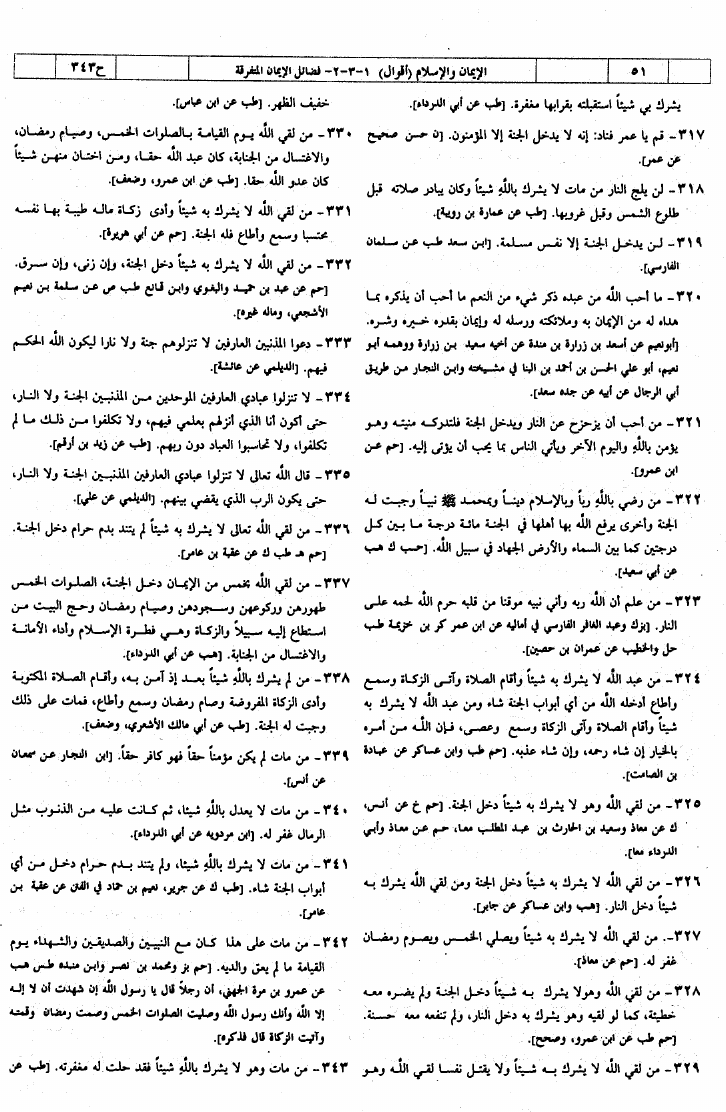 ٥١ الإيمان والإسلام (أقوال) ١-٣-٢- فضائل الإيمان المتفرقة ح٣٤٣
يشرك بي شيئاً استقبلته بقرابها مغفرة. [طب عن أبي الدرداء].
٣١٧- قم يا عمر فناد: إنه لا يدخل الجنة إلا المؤمنون. [ن حسن صحيح
عن عمر].
٣١٨- لن يلج النار من مات لا يشرك باللَّهِ شيئاً وكان يبادر صلاته قبل
طلوع الشمس وقبل غروبها. [طب عن عمارة بن رويبة].
٣١٩- لـن يدخـل الجنـة إلا نفـس مسلمـة. [ابـن سعد طب عـن سلمان
الفارسي].
٣٢٠- ما أحب اللَّه من عبده ذكر شيء من النعم ما أحب أن يذكره بمـا
هداه له من الإيمان به وملائكته ورسله له وإيمان بقدره خـيره وشـره.
[أبونعيم عن أسعد بن زرارة بن مندة عن أخيه سعيد بن زرارة ووهمه أبو
نعيم، أبو علي الحسن بن أحمد بن البنا في مشيخته وابن النجار من طريق
أبي الرجال عن أبيه عن جده سعد].
٣٢١- من أحب أن يزحزح عن النار ويدخل الجنة فلتدركـه منيتـه وهـو
يؤمن باللَّه واليوم الآخر ويأتي الناس بما يحب أن يؤتى إليه. [حم عـن
ابن عمرو].
٣٢٢- من رضي باللَّهِ رباً وبالإسلام دينـاً وبمحمـد ﷺ نبيـاً وجبت لـه
الجنة وأخرى يرفع اللَّه بها أهلها في الجنة مائـة درجـة مـا بـين كـل
درجتين كما بين السماء والأرض الجهاد في سبيل اللَّه. [حسب ك هب
عن أبي سعيد].
٣٢٣- من علم أن اللَّه ربه وأني نبيه موقنا من قلبه حرم اللَّه لحمه علـى
النار. [بزك وعبد الغافر الفارسي في أماليه عن ابن عمر كر بن خزيمة طب
حل والخطيب عن عمران بن حصين].
٣٢٤- من عبد اللَّه لا يشرك به شيئاً وأقام الصلاة وآتـى الزكـاة وسمـع
وأطاع أدخله اللَّه من أي أبواب الجنة شاء ومن عبد اللَّه لا يشرك به
شيئاً وأقام الصلاة وآتى الزكاة وسمع وعصـى، فـإن اللَّـه مـن أمـره
بالخيار إن شاء رحمه، وإن شاء عذبه. [حم طب وابن عساكر عن عبادة
بن الصامت].
٣٢٥- من لقي اللَّه وهو لا يشرك به شيئاً دخل الجنة. [حم خ عن أنس،
ك عن معاذ وسعيد بن الحارث بن عبد المطلب معـا، حـم عـن معاذ وأبي
الدرداء معا].
٣٢٦- من لقي اللَّه لا يشرك به شيئاً دخل الجنة ومن لقي اللَّه يشرك بـه
شيئاً دخل النار. [هب وابن عساكر عن جابر].
٣٢٧-. من لقي اللَّه لا يشرك به شيئاً ويصلي الخمـس ويصـوم رمضـان
غفر له. [حم عن معاذ].
٣٢٨- من لقي اللَّه وهولا يشرك بـه شيئـاً دخـل الجنـة ولم يضـره معـه
خطيئة، كما لو لقيه وهو يشرك به دخل النار، ولم تنفعه معه حسنة.
[حم طب عن ابن عمرو، وصحح].
٣٢٩- من لقي اللَّه لا يشرك بـه شيئـاً ولا يقتـل نفسـا لقـي اللَّـه وهـو
خفيف الظهر. [طب عن ابن عباس].
٣٣٠- من لقي اللَّه يوم القيامة بـالصلوات الخمس، وصيـام رمضـان،
والاغتسال من الجنابة، كان عبد اللَّه حقـا، ومـن اختان منهـن شيئـاً
كان عدو اللَّه حقا. [طب عن ابن عمرو، وضعف].
٣٣١- من لقي اللَّه لا يشرك به شيئاً وأدى زكـاة مالـه طيبـة بهـا نفسـه
محتسبا وسمع وأطاع فله الجنة. [حم عن أبي هريرة].
٣٣٢- من لقي اللَّه لا يشرك به شيئاً دخل الجنة، وإن زنى، وإن سـرق.
[حم عن عبد بن حميد والبغوي وابن قانع طب ص عن سلمة بن نعيم
الأشجعي، وماله غيره].
٣٣٣- دعوا المذنبين العارفين لا تنزلوهم جنة ولا نارا ليكون اللَّه الحكـم
فيهم. [الديلمي عن عائشة].
٣٣٤- لا تنزلوا عبادي العارفين الموحدين مـن المذنبـين الجنـة ولا النـار،
حتى أكون أنا الذي أنزلهم بعلمي فيهم، ولا تكلفوا مـن ذلـك مـا لم
تكلفوا، ولا تحاسبوا العباد دون ربهم. [طب عن زيد بن أرقم].
٣٣٥- قال اللَّه تعالى لا تنزلوا عبادي العارفين المذنبـين الجنـة ولا النـار،
حتى يكون الرب الذي يقضي بينهم. [الديلمي عن علي].
٣٣٦- من لقي اللَّه تعالى لا يشرك به شيئاً لم يتند بدم حرام دخل الجنة.
[حم هـ طب ك عن عقبة بن عامر].
٣٣٧- من لقي اللَّه بخمس من الإيمان دخـل الجنـة، الصلـوات الخمـس
طهورهن وركوعهن وسـجودهن وصيـام رمضـان وحـج البيـت مـن
استطاع إليـه سبيـلاً والزكـاة وهـي فطـرة الإسـلام وأداء الأمانـة
والاغتسال من الجنابة. [هب عن أبي الدرداء].
٣٣٨- من لم يشرك باللَّهِ شيئاً بعـد إذ آمـن بـه، وأقـام الصـلاة المكتوبة
وأدى الزكاة المفروضة وصام رمضان وسمع وأطاع، فمات على ذلك
وجبت له الجنة. [طب عن أبي مالك الأشعري، وضعف].
٣٣٩- من مات لم يكن مؤمنـاً حقـاً فهو كافر حقاً. [ابن النجـار عـن سمعان
عن أنس].
٣٤٠- من مات لا يعدل باللَّهِ شيئا، ثم كـانت عليـه مـن الذنـوب مثـل
الرمال غفر له. [ابن مردويه عن أبي الدرداء].
٣٤١- من مات لا يشرك باللَّهِ شيئا، ولم يتند بـدم حـرام دخـل مـن أي
أبواب الجنة شاء. [طب ك عن جرير، نعيم بن حماد في الفتن عن عقبة بن
عامر].
٣٤٢- من مات على هذا كـان مـع النبيـين والصديقـين والشهـداء يـوم
القيامة ما لم يعق والديه. [حم بز ومحمد بن نصر وابـن منـده طـس هـب
عن عمرو بن مرة الجهني، أن رجلاً قال يا رسول اللَّه إن شهدت أن لا إلـه
إلا اللَّه وأنك رسول اللَّه وصليت الصلوات الخمس وصمت رمضان وقمته
وآتيت الزكاة قال فذكره].
٣٤٣- من مات وهو لا يشرك باللَّهِ شيئاً فقد حلت له مغفرته. [طب عن